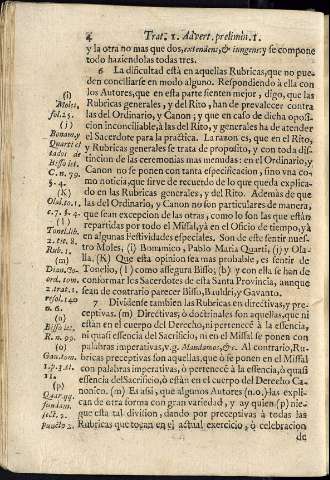 4 Trat. 1. Advert. prelimin. 1.
y la otra no mas que dos, extendens, & iungens; y se compone
todo haziendolas todas tres.
6 La dificultad està en aquellas Rubricas, que no pue-
den conciliarse en modo alguno. Respondiendo à ella con
los Autores, que en esta parte sienten mejor, digo, que las
Rubricas generales, y del Rito, han de prevalecer contra
las del Ordinario, y Canon; y que en caso de dicha oposi-
cion inconciliable, à las del Rito, y generales ha de atender
el Sacerdote para la practica. La razon es, que en el Rito,
y Rubricas generales se trata de proposito, y con toda dis-
tincion de las ceremonias mas menudas: en el Ordinario, y
Canon no se ponen con tanta especificacion, sino vna co-
mo noticia, que sirve de recuerdo de lo que queda explica-
do en las Rubricas generales, y del Rito. Además de que
las del Ordinario, y Canon no son particulares de manera,
que sean excepcion de las otras, como lo son las que estàn
repartidas por todo el Missal, yà en el Oficio de tiempo, yà
en algunas Festividades especiales. Son de este sentir nues-
tro Moles, (i) Bonamico, Pablo Maria Quarti, (j) y Ola-
lla. (K) Que esta opinion sea mas probable, es sentir de
Tonelio, (l) como assegura Bisso; (b) y con ella se han de
conformar los Sacerdotes de esta Santa Provincia, aunque
sean de contrario parecer Bisso, Bauldri, y Gavanto.
7 Dividense tambien las Rubricas en directivas, y pre-
ceptivas. (m) Directivas, ò doctrinales son aquellas, que ni
estàn en el cuerpo del Derecho, ni pertenecē à la essencia,
ni quasi essencia del Sacrificio, ni en el Missal se ponen con
palabras imperativas, v.g. Mandamos, & c. Al contrario, Ru-
bricas preceptivas son aquellas, que ò se ponen en el Missal
con palabras imperativas, ò pertenecē à la essencia, ò quasi
essencia del Sacrificio, ò estàn en el cuerpo del Derecho Ca-
nonico. (m) Es assi, que algunos Autores (n.o.) las expli-
can de otra forma con gran variedad, y ay quien (p) nie-
gue esta tal division, dando por preceptivas à todas las
Rubricas que tocan en el actual exercicio, ò celebracion
de
(i)
Moles,
fol. 25.
(j)
Bonam. y
Quarti ci-
tados de
Bisso let.
C. n. 79.
§. 4.
(K)
Olal. to. 1.
c. 7. §. 4.
(l)
Tonel. lib.
2. tit. 8.
Rub. 1.
(m)
Dian. Co-
ord. tom.
2. trat. 1.
resol. 140
n. 6.
(n)
Bisso let.
R. n. 99.
(o)
Gau. tom.
1. p. 3. tit.
11.
(p)
Quar. qq.
fundam.
sect. 2.
Puncto 2.